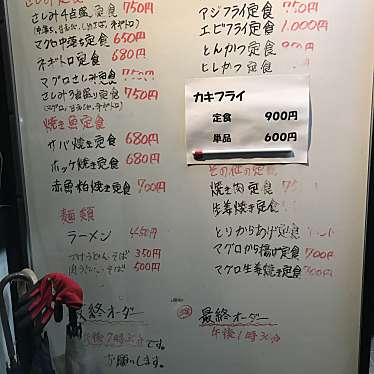 さしみ4点盛定食 750円
マグロ中落ち定食 650円
ネギトロ定食 680円
マグロさしみ定食 750円
さしみ3点盛り定食 750円
焼き魚定食
サバ焼き定食 680円
ホッケ焼き定食 680円
赤魚粕焼き定食 700円
麺類
ラーメン 450円
うどん・そば 350円
肉うどん・そば 500円
最終オーダー
午後7時30分です。
お願いします。
アジフライ定食 750円
エビフライ定食 1,000円
とんかつ定食
ヒレかつ定食
カキフライ
定食 900円
単品 600円
その他の定食
焼き肉定食
生姜焼き定食
とりからあげ定食
マグロから揚げ定食 700円
マグロ生姜焼き定食 700円
最終オーダー
午後1時30分